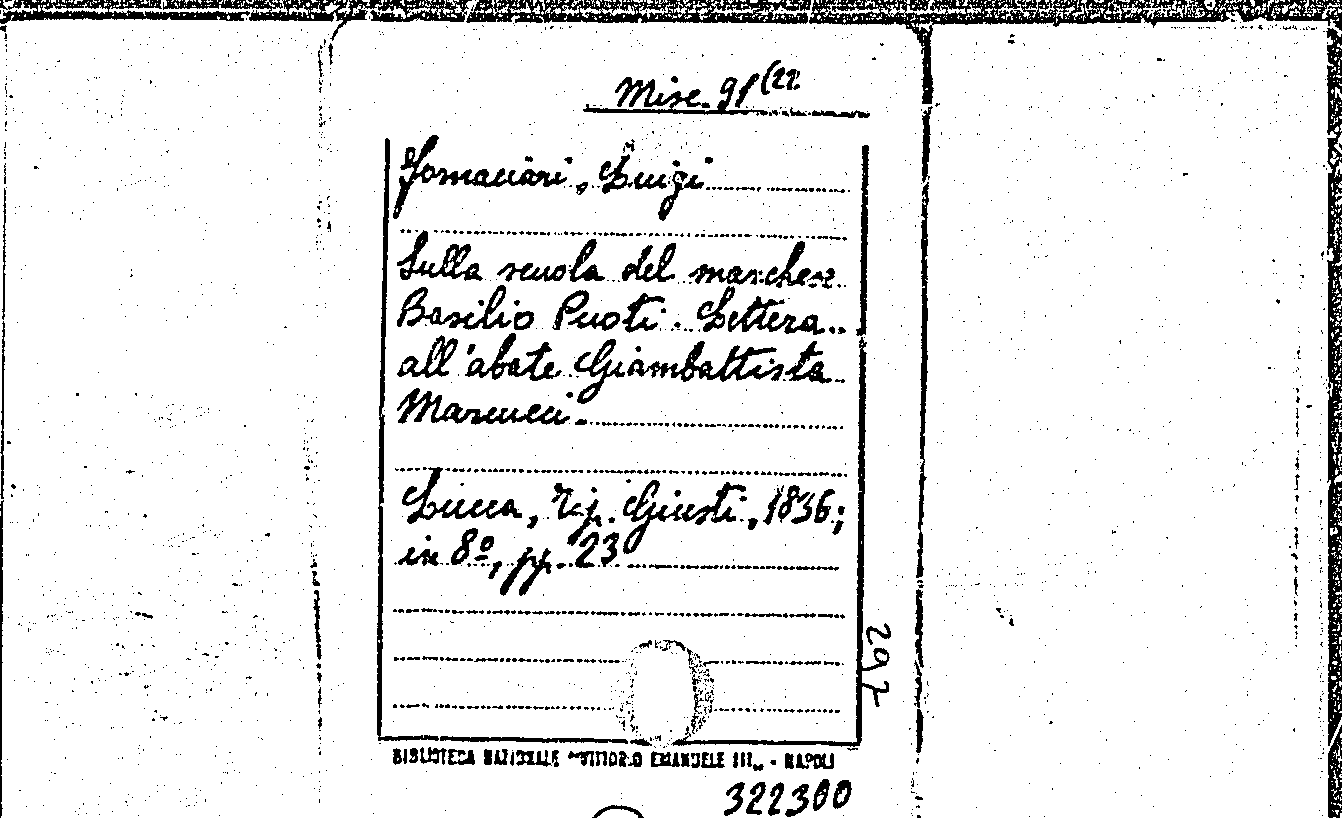 Misc. 91(22
Fornaciari, Luigi
Sulla scuola del marchese
Basilio Puoti. Lettera
all'abate Giambattista
Marcucci.
Lucca, Tip. Giusti, 1836;
in 8º, pp. 23
297
BIBLIOTECA NAZIONALE "VITTORIO EMANUELE III„ - NAPOLI
322300